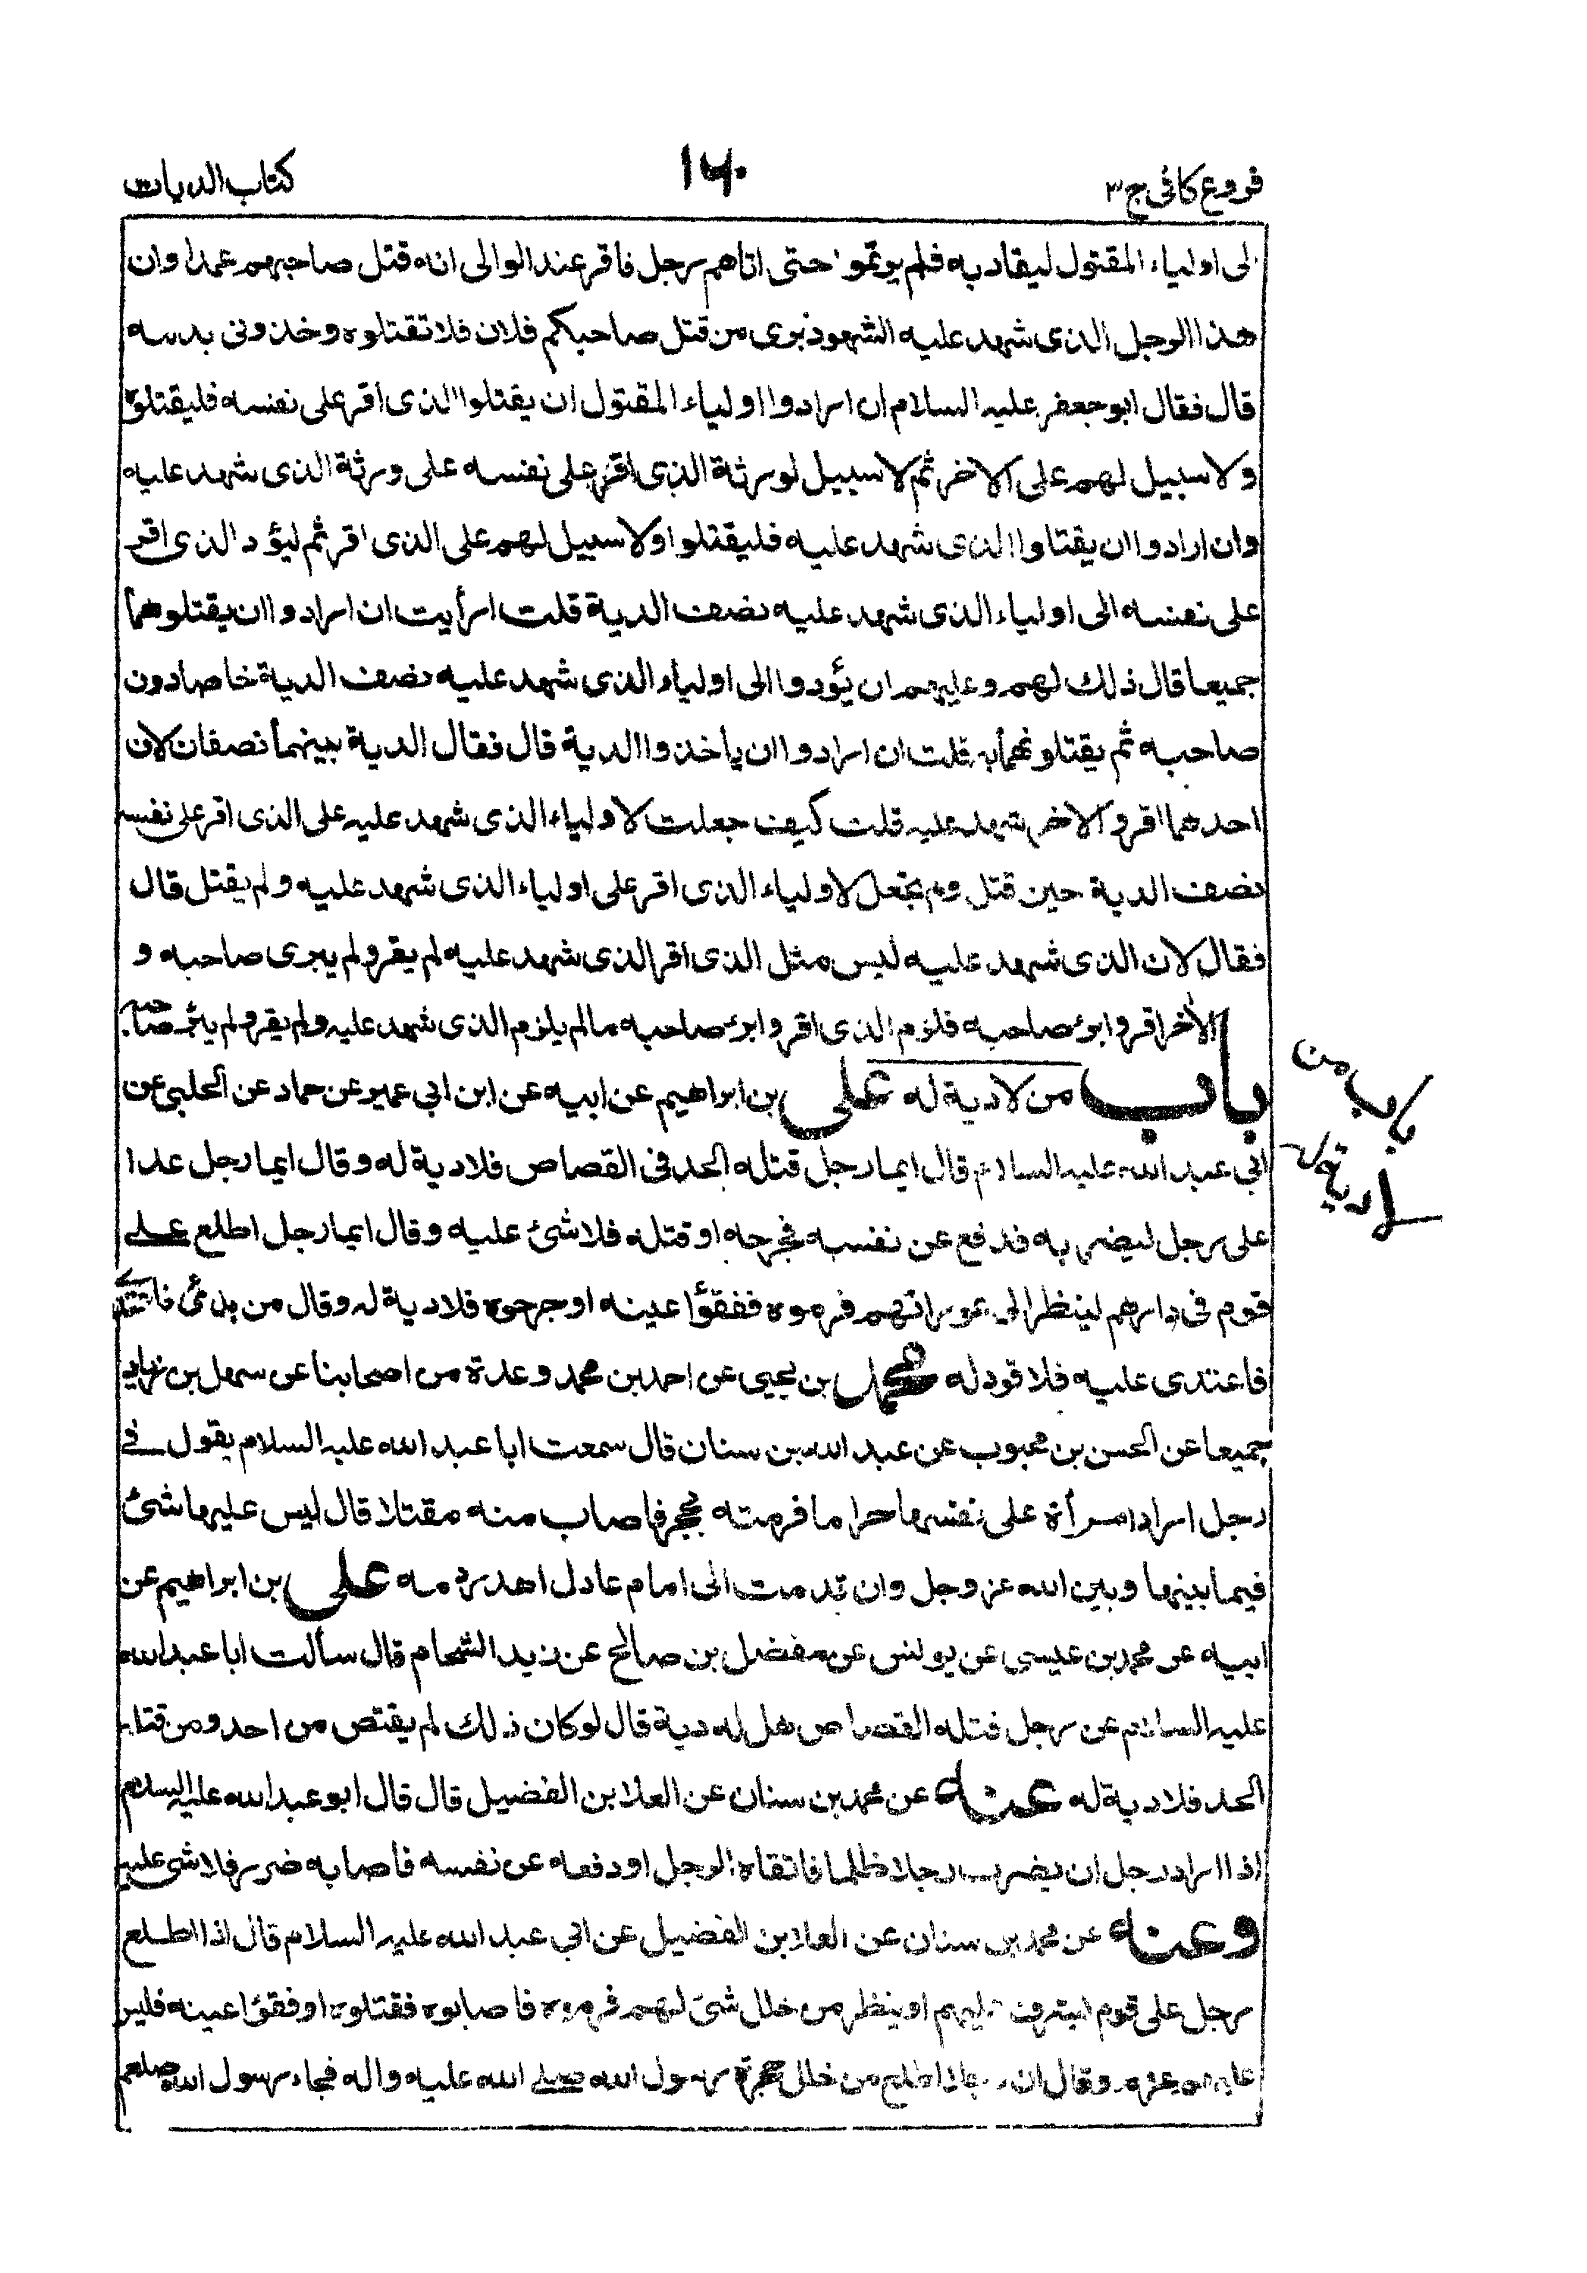 فروع كافى ج ٣
١٦٠
كتاب الديات
الى اولياء المقتول ليقاد به فلم يرتموا حتى اتاهم رجل فاقر عند الوالى انه قتل صاحبهم عمدا وان
هذا الرجل الذى شهد عليه الشهود برى من قتل صاحبكم فلان فلا تقتلوه وخذونى بدمه
قال فقال ابو جعفر عليه السلام ان ارادوا اولياء المقتول ان يقتلوا الذى اقر على نفسه فليقتلوه
ولا سبيل لهم على الاخر ثم لا سبيل لورثة الذى اقر على نفسه على ورثة الذى شهد عليه
وان ارادوا ان يقتلوا الذى شهد عليه فليقتلوا ولا سبيل لهم على الذى اقر ثم ليؤد الذى اقر
على نفسه الى اولياء الذى شهد عليه نصف الدية قلت ارأيت ان ارادوا ان يقتلوهما
جميعا قال ذلك لهم وعليهم ان يؤدوا الى اولياء الذى شهد عليه نصف الدية خاصا دون
صاحبه ثم يقتلونهما به قلت ان ارادوا ان ياخذوا الدية قال فقال الدية بينهما نصفان لان
احدهما اقر والاخر شهد عليه قلت كيف جعلت لاولياء الذى شهد عليه على الذى اقر على نفسه
نصف الدية حين قتل ولم تجعل لاولياء الذى اقر على اولياء الذى شهد عليه ولم يقتل قال
فقال لان الذى شهد عليه ليس مثل الذى اقر الذى شهد عليه لم يقر ولم يبرى صاحبه و
الأخر اقر وابرئ صاحبه فلزم الذى اقر وابرئ صاحبه مالم يلزم الذى شهد عليه ولم يقر ولم يبرئ صاحبه
باب من لا دية له على بن ابراهيم عن ابيه عن ابن ابي عمير عن حماد عن الحلبي عن
ابي عبد الله عليه السلام قال ايما رجل قتله الحد فى القصاص فلا دية له وقال ايما رجل عدا
على رجل ليضربه فدفع عن نفسه فجرحه او قتله فلا شئ عليه وقال ايما رجل اطلع على
قوم فى دارهم لينظر الى عوراتهم فرموه ففقؤا عينه او جرحوه فلا دية له وقال من بدئ فاعتدى
فاعتدى عليه فلا قود له محمد بن يحيى عن احمد بن محمد وعدة من اصحابنا عن سهل بن زياد
جميعا عن الحسن بن محبوب عن عبد الله بن سنان قال سمعت ابا عبد الله عليه السلام يقول فى
رجل اراد امرأة على نفسها حراما فرمته بحجر فاصاب منه مقتلا قال ليس عليها شئ
فيما بينها وبين الله عز وجل وان قدمت الى امام عادل اهدر دمه على بن ابراهيم عن
ابيه عن محمد بن عيسى عن يونس عن مفضل بن صالح عن زيد الشحام قال سألت ابا عبد الله
عليه السلام عن رجل قتله القصاص هل له دية قال لو كان ذلك لم يقتص من احد ومن قتله
الحد فلا دية له عنه عن محمد بن سنان عن العلا بن الفضيل قال قال ابو عبد الله عليه السلام
اذا اراد رجل ان يضرب رجلا ظلما فاتقاه الرجل او دفعه عن نفسه فاصابه ضرر فلا شئ عليه
وعنه عن محمد بن سنان عن العلا بن الفضيل عن ابي عبد الله عليه السلام قال اذا اطلع
رجل على قوم ليشرف عليهم او ينظر من خلل شئ لهم فرموه فاصابوه فقتلوه او فقؤا عينه فليس
عليهم غرم وقال ان رجلا اطلع من خلل حجرة رسول الله صلى الله عليه واله فجاء رسول الله صلعم
باب من
لا دية له